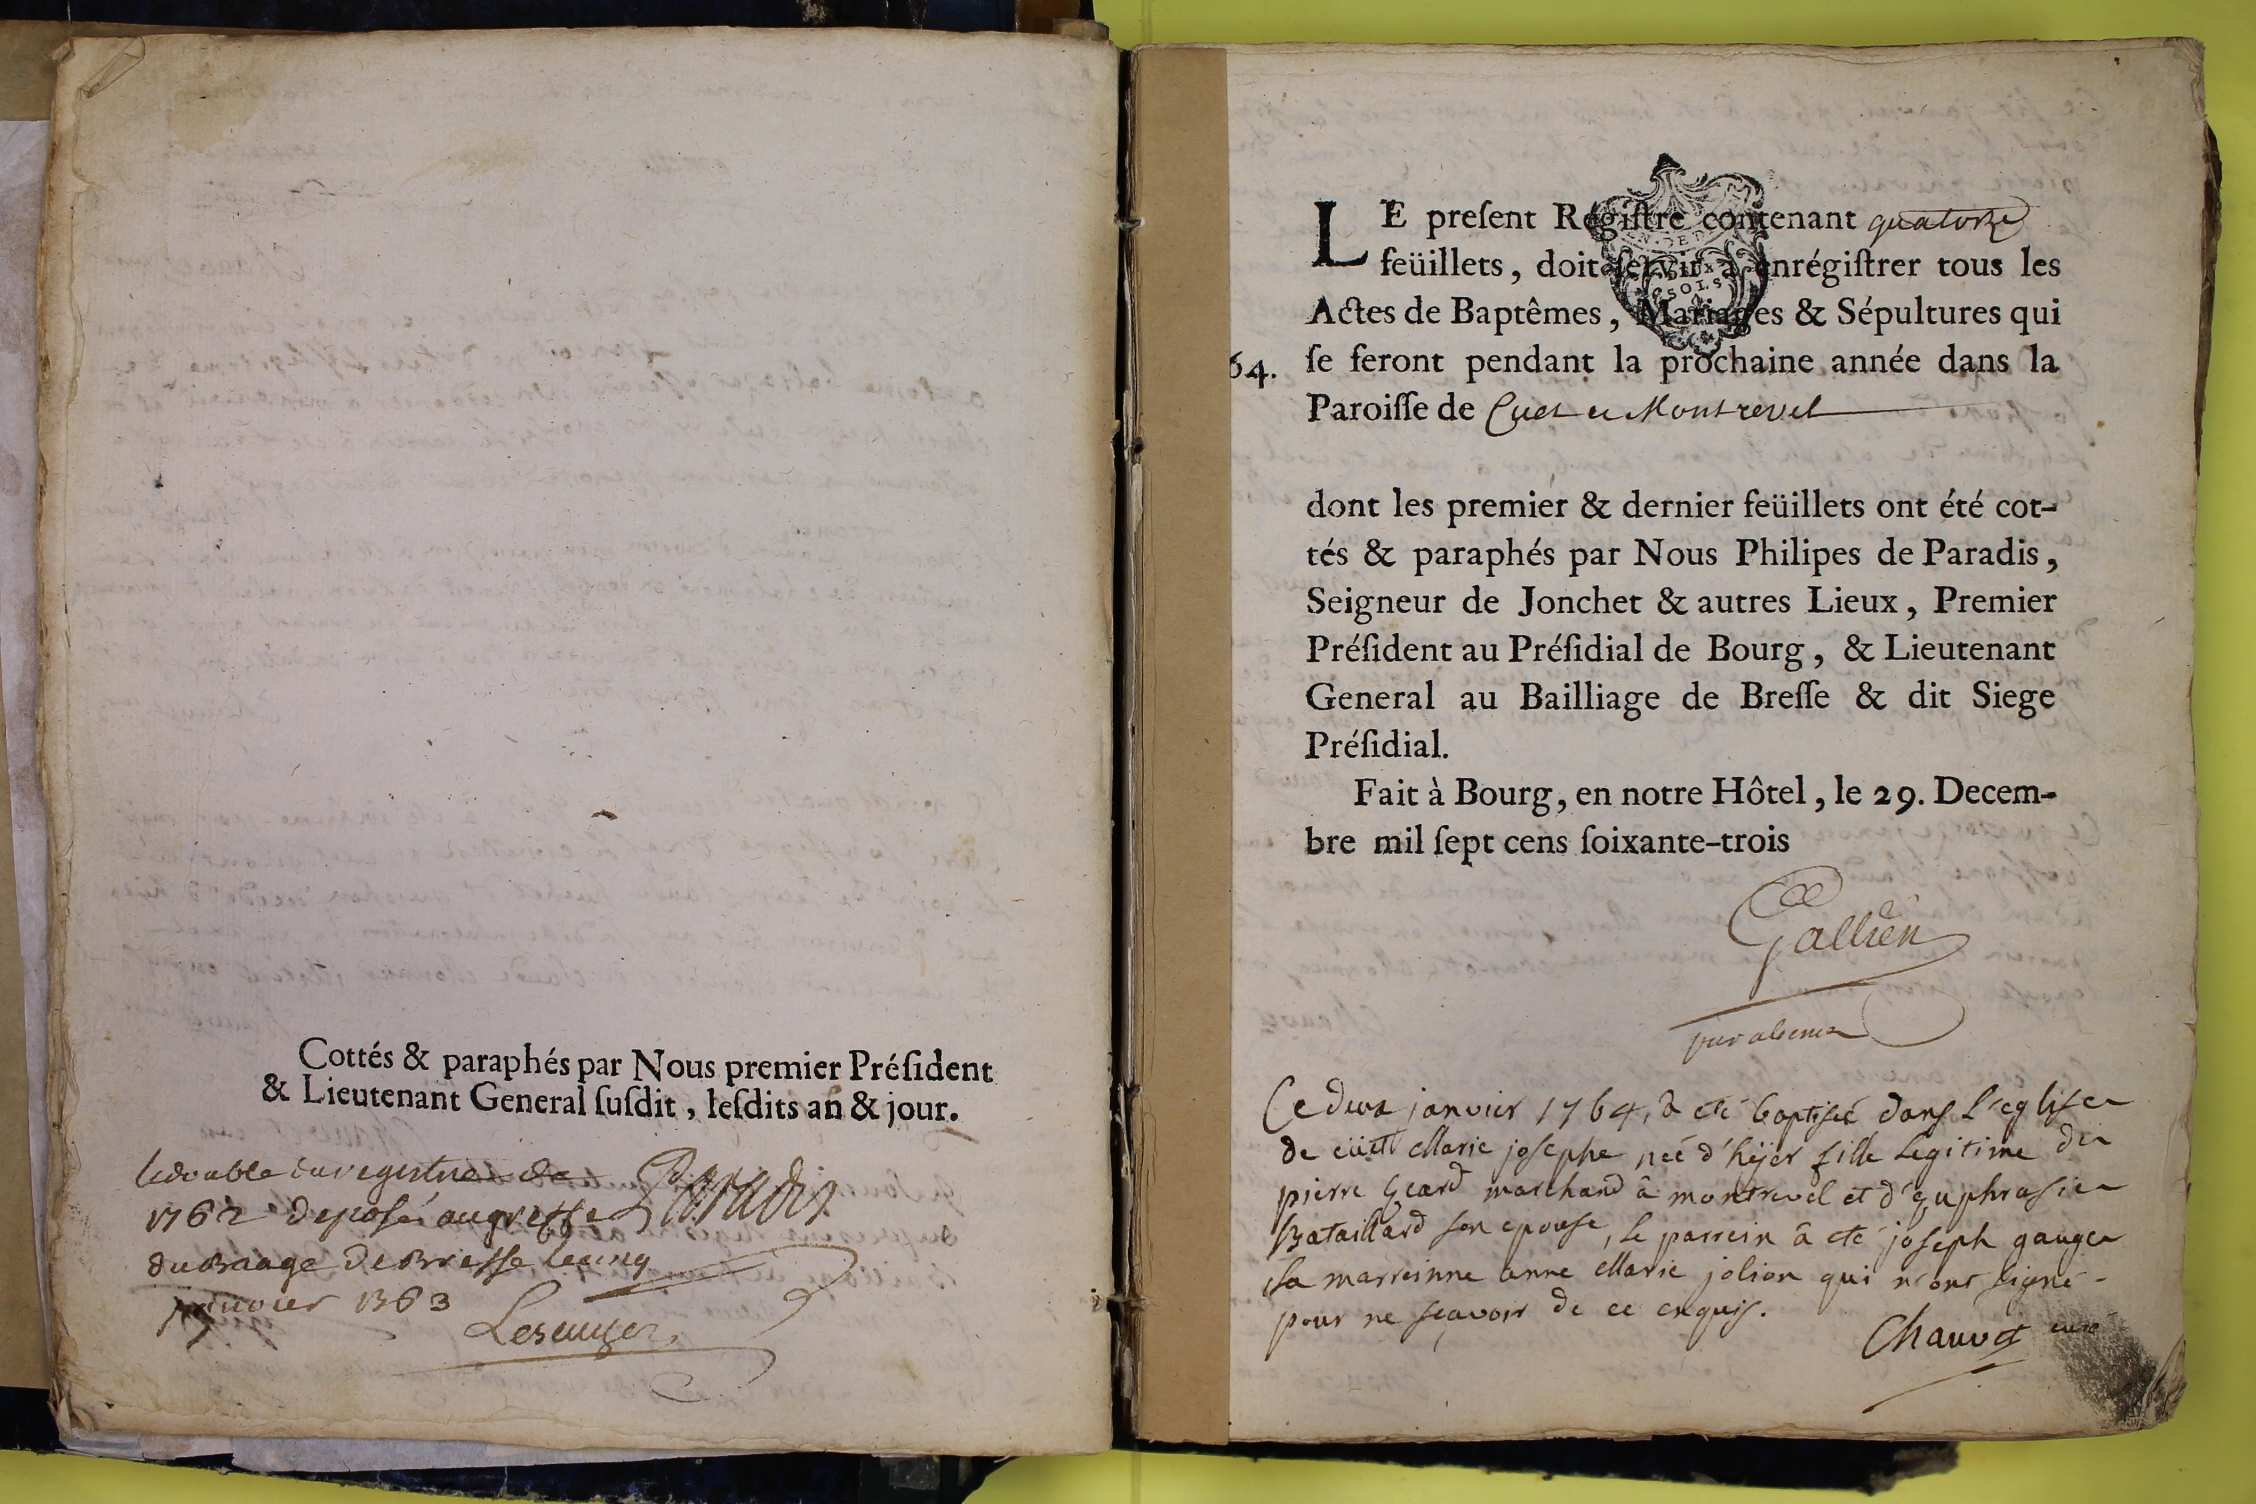 Cottés & paraphés par Nous premier Préſident
& Lieutenant General ſuſdit, leſdits an & jour.
le double du registre de
1762 deposé au greffe Paradis
du Baage de Bresse le cinq
janvier 1763
64.
LE preſent Régiſtre contenant quatorze
feüillets, doit ſervir à enrégiſtrer tous les
Actes de Baptêmes, Mariages & Sépultures qui
ſe feront pendant la prochaine année dans la
Paroiſſe de Cuet et Montrevel
dont les premier & dernier feüillets ont été cot-
tés & paraphés par Nous Philipes de Paradis,
Seigneur de Jonchet & autres Lieux, Premier
Préſident au Préſidial de Bourg, & Lieutenant
General au Bailliage de Breſſe & dit Siege
Préſidial.
Fait à Bourg, en notre Hôtel, le 29. Decem-
bre mil ſept cens ſoixante-trois
Gallien
par absence
Ce deux janvier 1764, à eté baptisée dans l'eglise
de cüet Marie josephe née d'hÿer fille legitime de
pierre geard marchand â montrevel et d'Euphrasie
Bataillard son epouse, le parrein â eté joseph gauge
la marreinne anne Marie jolion qui n'ont signé
pour ne sçavoir de ce enquis.
Chauvet curé